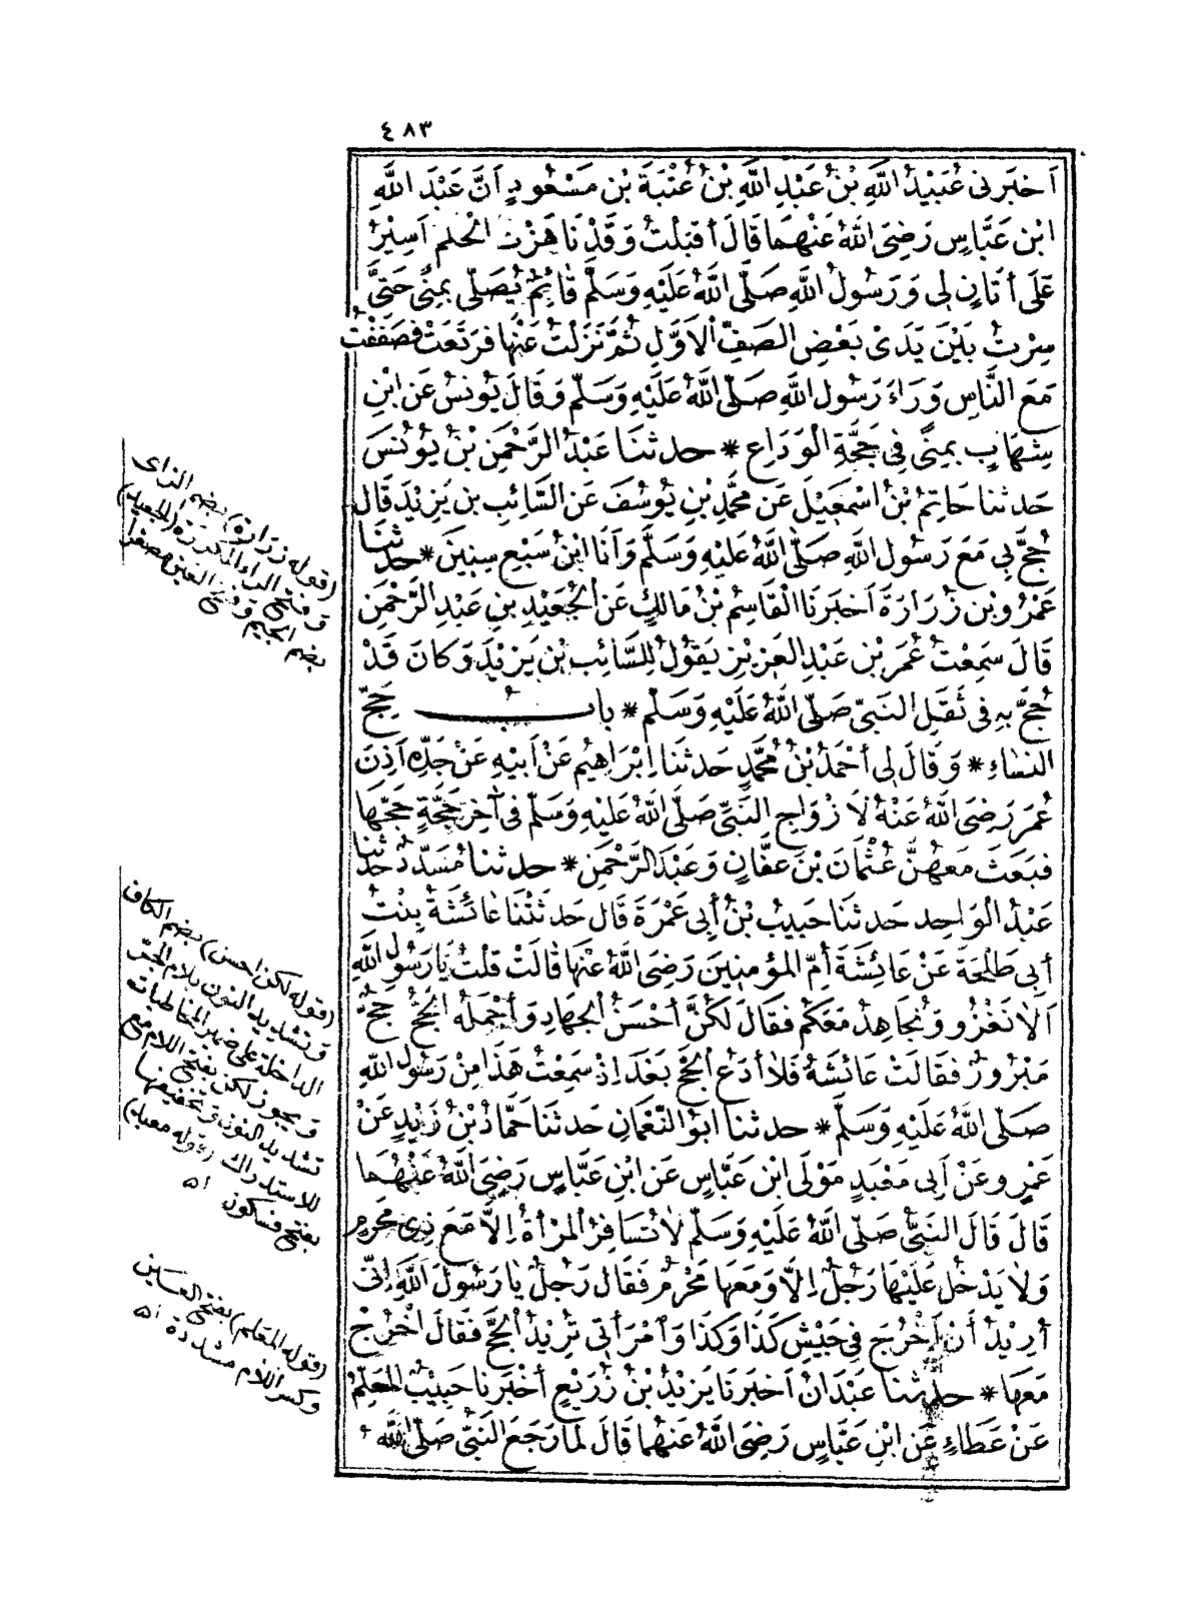 ٤٨٣
أَخْبَرَنِى عُبَيْدُ اللَّهِ بْنُ عَبْدِ اللَّهِ بْنُ عُتْبَةَ بْنِ مَسْعُودٍ اَنَّ عَبْدَ اللَّهِ
ابْنَ عَبَّاسٍ رَضِىَ اللَّهُ عَنْهُمَا قَالَ أَقْبَلْتُ وَقَدْ نَاهَزْتُ الْحُلُمَ اَسِيْرُ
عَلَى أَتَانٍ لِى وَرَسُولُ اللَّهِ صَلَّى اللَّهُ عَلَيْهِ وَسَلَّمَ قَائِمٌ يُصَلِّى بِمِنًى حَتَّى
سِرْتُ بَيْنَ يَدَىْ بَعْضِ الصَّفِّ الْاَوَّلِ ثُمَّ نَزَلْتُ عَنْهَا فَرَتَعَتْ فَصَفَفْتُ
مَعَ النَّاسِ وَرَاءَ رَسُولِ اللَّهِ صَلَّى اللَّهُ عَلَيْهِ وَسَلَّمَ وَقَالَ يُونُسُ عَنِ ابْنِ
شِهَابٍ بِمِنًى فِى حَجَّةِ الْوَدَاعِ * حدثنَا عَبْدُ الرَّحْمٰنِ بْنُ يُونُسَ
حَدثنا حَاتِمُ بْنُ اسْمَعِيْلَ عَنْ مُحَمَّدِ بْنِ يُوسُفَ عَنِ السَّائِبِ بنِ يَزِيْدَ قَالَ
حُجَّ بِى مَعَ رَسُولِ اللَّهِ صَلَّى اللَّهُ عَلَيْهِ وَسَلَّمَ وَأَنَا ابْنُ سَبْعِ سِنِينَ * حدثنَا
عَمْرُو بنُ زُرَارَةَ اَخبَرَنَا الْقَاسِمُ بْنُ مَالِكٍ عَنِ الْجُعَيْدِ بنِ عَبْدِ الرَّحْمٰنِ
قَالَ سَمِعْتُ عُمَرَ بْنَ عَبْدِ الْعَزِيْزِ يَقُولُ لِلسَّائِبِ بْنِ يَزِيْدَ وَكَانَ قَدْ
حُجَّ بِهِ فِى ثَقَلِ النَّبِىِّ صَلَّى اللَّهُ عَلَيْهِ وَسَلَّمَ * بابُ حَجِّ
النِّسَاءِ * وَقَالَ لِى أَحْمَدُ بْنُ مُحَمَّدٍ حَدثنَا اِبْرَاهِيمُ عَنْ أَبِيْهِ عَنْ جَدِّهِ اَذِنَ
عُمَرُ رَضِىَ اللَّهُ عَنْهُ لِاَزْوَاجِ النَّبِىِّ صَلَّى اللَّهُ عَلَيْهِ وَسَلَّمَ فِى آخِرِ حَجَّةٍ حَجَّهَا
فبَعَثَ مَعَهُنَّ عُثْمَانَ بْنَ عَفَّانٍ وَعَبْدَ الرَّحْمٰنِ * حدثنا مُسَدَّدٌ حدثنا
عَبْدُ الْوَاحِدِ حَدثنَا حَبِيبُ بْنُ أَبِى عَمْرَةَ قَالَ حَدثَتْنَا عَائِشَةُ بِنْتُ
أَبِى طَلْحَةَ عَنْ عَائِشَةَ أُمِّ الْمُؤْمِنِينَ رَضِىَ اللَّهُ عَنْهَا قَالَتْ قُلْتُ يَا رَسُولَ اللَّهِ
اَلَا نَغْزُو وَنُجَاهِدُ مَعَكُمْ فَقَالَ لَكُنَّ أَحْسَنُ الْجِهَادِ وَأَجْمَلُهُ الْحَجُّ حَجٌّ
مَبْرُورٌ فَقَالَتْ عَائِشَةُ فَلَا أَدَعُ الْحَجَّ بَعْدَ اِذْ سَمِعْتُ هَذَا مِنْ رَسُولِ اللَّهِ
صَلَّى اللَّهُ عَلَيْهِ وَسَلَّمَ * حدثنا اَبُو النُّعْمَانِ حَدثنَا حَمَّادُ بْنُ زَيْدٍ عَنْ
عَمْرٍو عَنْ اَبِى مَعْبَدٍ مَوْلَى ابْنِ عَبَّاسٍ عَنِ ابْنِ عَبَّاسٍ رَضِىَ اللَّهُ عَنْهُمَا
قَالَ قَالَ النَّبِىُّ صَلَّى اللَّهُ عَلَيْهِ وَسَلَّمَ لَا تُسَافِرُ الْمَرْأَةُ اِلَّا مَعَ ذِى مَحْرَمٍ
وَلَا يَدْخُلُ عَلَيْهَا رَجُلٌ اِلَّا وَمَعَهَا مَحْرَمٌ فَقَالَ رَجُلٌ يَا رَسُولَ اللَّهِ اِنِّى
أُرِيْدُ أَنْ أَخْرُجَ فِى جَيْشِ كَذَا وَكَذَا وَامْرَأَتِى تُرِيْدُ الْحَجَّ فَقَالَ اخْرُجْ
مَعَهَا * حدثنا عَبْدَانُ اَخبَرَنَا يَزِيْدُ بْنُ زُرَيْعٍ أَخْبَرَنَا حَبِيْبٌ الْمُعَلِّمُ
عَنْ عَطَاءٍ عَنِ ابْنِ عَبَّاسٍ رَضِىَ اللَّهُ عَنْهُمَا قَالَ لَمَا رَجَعَ النَّبِىُّ صَلَّى اللَّهُ
(قوله زرارة) بضم الزاى
وفتح الراء المكررة (الجعيد)
بضم الجيم وفتح العين مصغرا
(قوله لكن احسن) بضم الكاف
وتشديد النون بلام الجرّ
الداخلة على ضمير المخاطبات
ويجوز لكن بفتح اللام مع
تشديد النون وتخفيفها
للاستدراك (قوله معبد)
بفتح فسكون اه
(قوله المعلم) بفتح العين
وكسر اللام مشددة اه